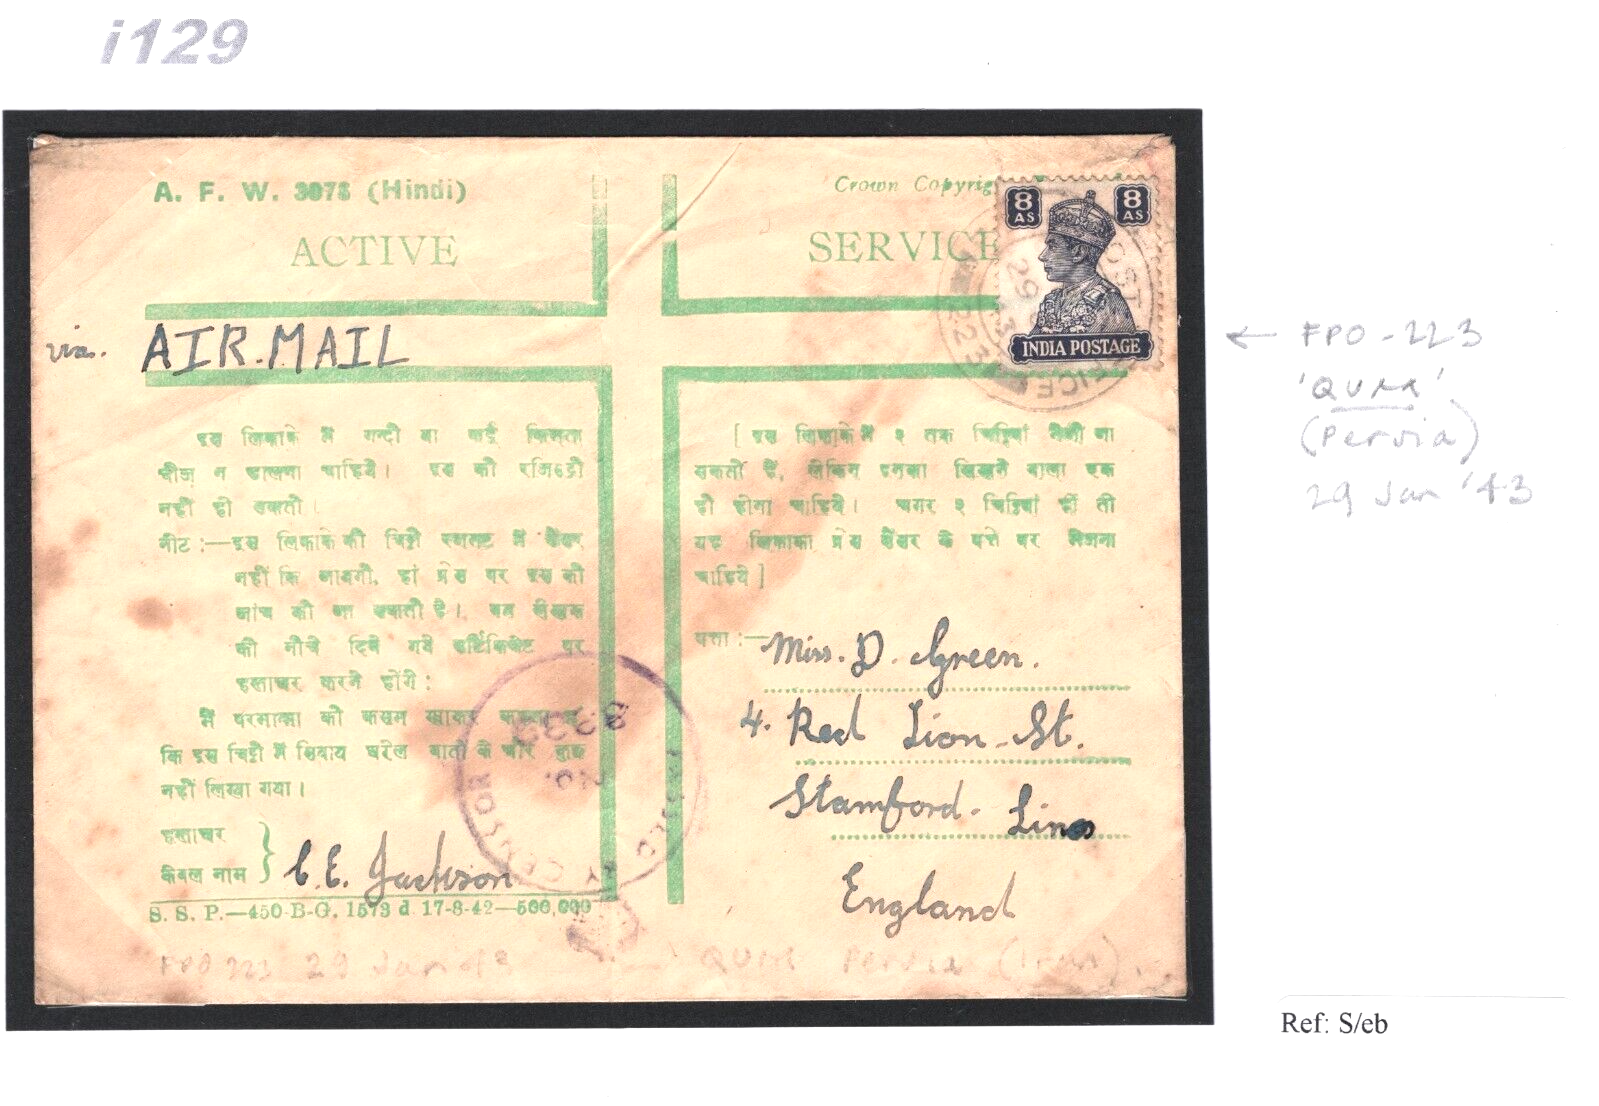 i129
A. F. W. 3078 (Hindi)
Crown Copyrig
ACTIVE SERVICE
8 AS 8 AS
INDIA POSTAGE
POST OFFICE
29
43
223
via. AIR. MAIL
← FPO - 223
'QUM'
(Persia)
29 Jan '43
इस लिफ़ाफ़े में गन्दी वा कोई किस्सा
चीज़ न डालना चाहिये। इस की रजिस्ट्री
नहीं हो सकती।
नोट :—इस लिफ़ाफ़े की चिट्ठी में सेंसर
नहीं कि जावगी, हां प्रेस पर इस की
जांच की जा सकती है। लेखक
को नीचे दिये गये सर्टिफ़िकेट पर
हस्ताक्षर करने होंगे :
मैं परमात्मा की कसम खाकर कहता
कि इस चिट्ठी में सिवाय घरेलू बातों के और कुछ
नहीं लिखा गया।
हस्ताक्षर
केवल नाम } C. E. Jackson
S. S. P.—450-B-G. 1573 d 17-8-42—500,000
[ इस लिफ़ाफ़े में २ तक चिट्ठियां भेजी जा
सकती हैं, लेकिन इनका लिखने वाला एक
ही होना चाहिये। अगर २ चिट्ठियां हों तो
यह लिफ़ाफ़ा प्रेस सेंसर के पते पर भेजना
चाहिये ]
पता :— Miss. D. Green.
4. Red Lion. St.
Stamford. Lincs
England
PASSED BY CENSOR
No.
FPO 223 29 Jan 43 — QUM Persia (Iran).
Ref: S/eb